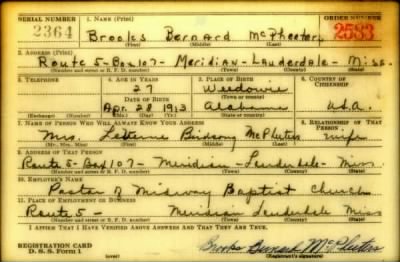 SERIAL NUMBER 1. Name (Print) ORDER NUMBER
2364 Brooks Bernard McPheeters 2533
(First) (Middle) (Last)
2. Address (Print)
Route 5-Box 107- Meridian-Lauderdale-Miss.
(Number and street or R. F. D. number) (Town) (County) (State)
3. Telephone 4. Age in Years 5. Place of Birth 6. Country of Citizenship
27 Weedowie
Date of Birth (Town or county)
Apr. 28 1913 Alabama U.S.A.
(Exchange) (Number) (Mo.) (Day) (Yr.) (State or country)
7. Name of Person Who Will Always Know Your Address 8. Relationship of That Person
Mrs. Birdsong McPheeters wife
(Mr., Mrs., Miss) (First) (Middle) (Last)
9. Address of That Person
Route 5-Box 107- Meridian- Lauderdale- Miss.
(Number and street or R. F. D. number) (Town) (County) (State)
10. Employer's Name
Pastor of Midway Baptist Church
11. Place of Employment or Business
Route 5- Meridian Lauderdale Miss
(Number and street or R. F. D. number) (Town) (County) (State)
I Affirm That I Have Verified Above Answers and That They Are True.
REGISTRATION CARD
D. S. S. Form 1 (over) Brooks Bernard McPheeters
(Registrant's signature)